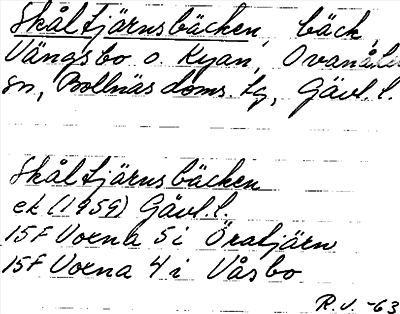 Skåltjärnsbäcken, bäck,
Vängsbo o. Ryan, Ovanåke
sn, Bollnäs doms. tg, Gävl. l.
Skåltjärnsbäcken
ek (1959) Gävl. l.
15F Voxna 5 i Öratjärn
15F Voxna 4 i Våsbo
R.J. -63